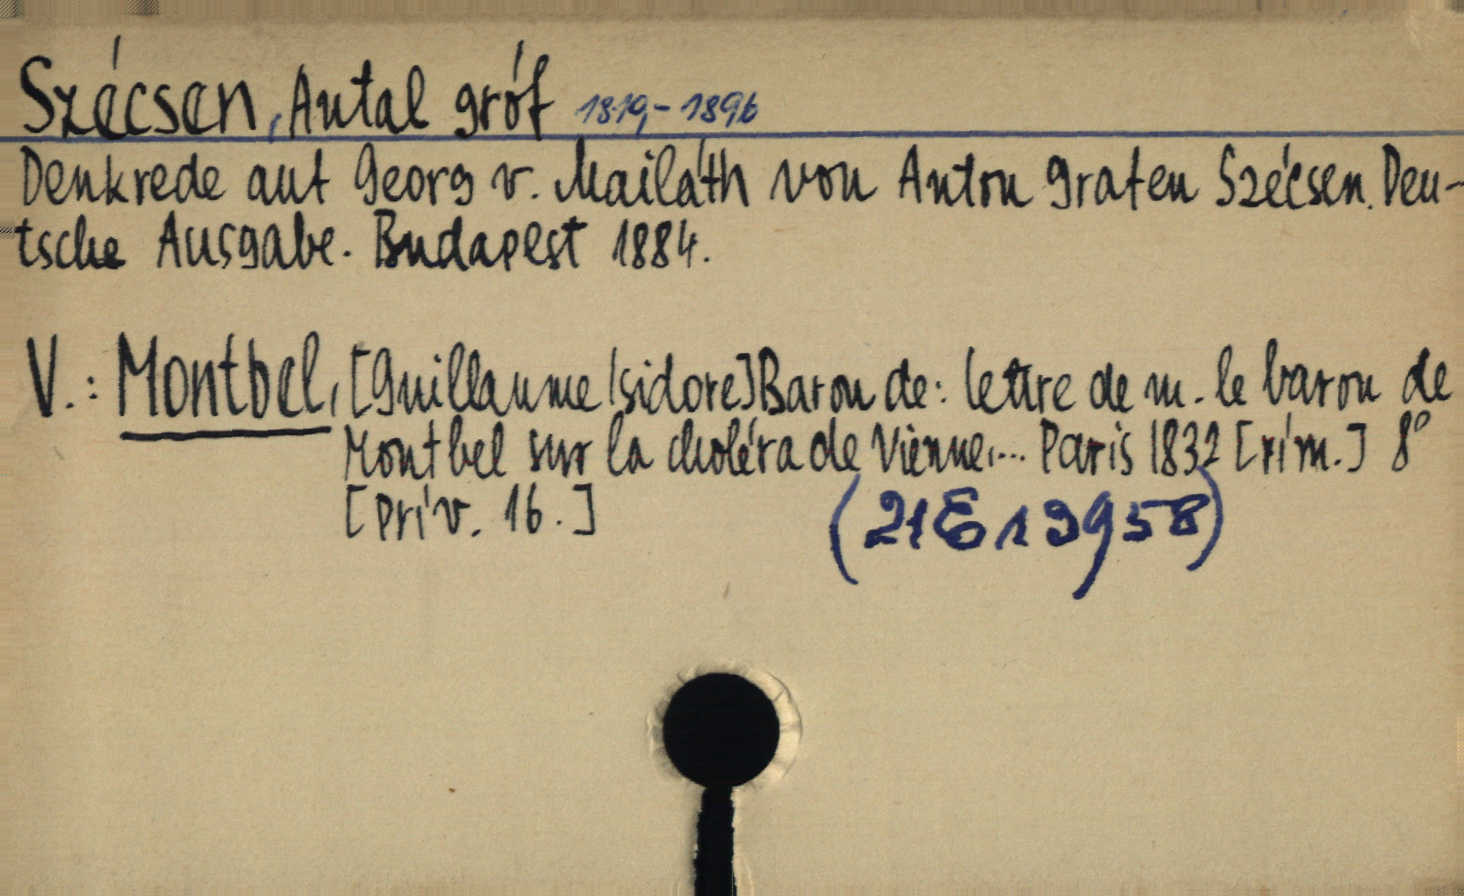 Szécsen, Antal gróf 1819-1896
Denkrede auf Georg v. Mailáth von Anton Grafen Szécsen. Deu-
tsche Ausgabe. Budapest 1884.
V.: Montbel, [Guillaume Isidore] Baron de: lettre de m. le baron de
Montbel sur la choléra de Vienne,... Paris 1832 [rím.] 8°
[Priv. 16.]
(21E13958)